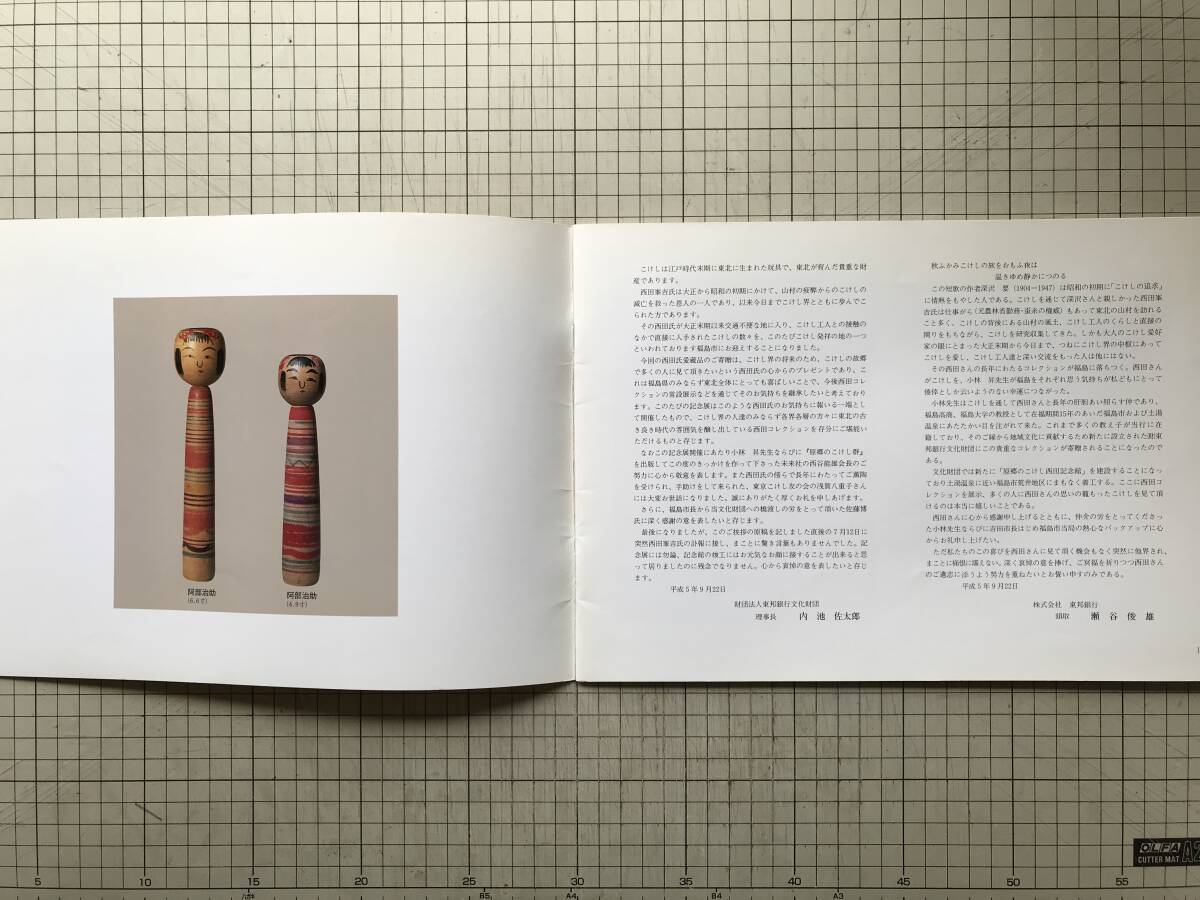 阿部治助
(6.6寸)
阿部治助
(4.9寸)
こけしは江戸時代末期に東北に生まれた玩具で、東北が育んだ貴重な財
産であります。
西田峯吉氏は大正から昭和の初期にかけて、山村の疲弊からのこけしの
滅亡を救った恩人の一人であり、以来今日までこけし界とともに歩んでこ
られた方であります。
その西田氏が大正末期以来交通不便な地に入り、こけし工人との接触の
なかで直接に入手されたこけしの数々を、このたびこけし発祥の地の一つ
といわれております福島市にお迎えすることになりました。
今回の西田氏愛蔵品のご寄贈は、こけし界の将来のため、こけしの故郷
で多くの人に見て頂きたいという西田氏の心からのプレゼントであり、こ
れは福島県のみならず東北全体にとっても喜ばしいことで、今後西田コレ
クションの常設展示などを通じてそのお気持ちを継承したいと考えており
ます。このたびの記念展はこのような西田氏のお気持ちに報いる一端とし
て開催したもので、こけし界の人達のみならず各界各層の方々に東北の古
き良き時代の雰囲気を醸し出している西田コレクションを存分にご堪能い
ただけるものと存じます。
なおこの記念展開催にあたり小林 昇先生ならびに『原郷のこけし群』
を出版してこの度のきっかけを作って下さった未来社の西谷能雄会長のご
努力に心から敬意を表します。また西田氏の傍らで長年にわたってご薫陶
を受けられ、手助けをして来られた、東京こけし友の会の浅賀八重子さん
には大変お世話になりました。誠にありがたく厚くお礼を申しあげます。
さらに、福島市長から当文化財団への橋渡しの労をとって頂いた佐藤博
氏に深く感謝の意を表したいと存じます。
最後になりましたが、このご挨拶の原稿を記しました直後の7月12日に
突然西田峯吉氏の訃報に接し、まことに驚き言葉もありませんでした。記
念展には勿論、記念館の竣工にはお元気なお顔に接することが出来ると思
って居りましたのに残念でなりません。心から哀悼の意を表したいと存じ
ます。
平成5年9月22日
財団法人東邦銀行文化財団
理事長 内池 佐太郎
秋ふかみこけしの旅をおもふ夜は
温きゆめ静かにつのる
この短歌の作者深沢 要(1904―1947)は昭和の初期に「こけしの追求」
に情熱をもやした人である。こけしを通じて深沢さんと親しかった西田峯
吉氏は仕事がら(元農林省勤務・蚕糸の権威)もあって東北の山村を訪れる
こと多く、こけしの背後にある山村の風土、こけし工人のくらしと直接の
関りをもちながら、こけしを研究収集してきた。しかも大人のこけし愛好
家の眼にとまった大正末期から今日まで、つねにこけし界の中枢にあって
こけしを愛し、こけし工人達と深い交流をもった人は他にはない。
その西田さんの長年にわたるコレクションが福島に落ちつく。西田さん
がこけしを、小林 昇先生が福島をそれぞれ思う気持ちが私どもにとって
僥倖としか云いようのない幸運につながった。
小林先生はこけしを通して西田さんと長年の肝胆あい照らす仲であり、
福島高商、福島大学の教授として在福期間15年のあいだ福島市および土湯
温泉にあたたかい目を注がれて来た。これまで多くの教え子が当行に在
籍しており、そのご縁から地域文化に貢献するため新たに設立された財東
邦銀行文化財団にこの貴重なコレクションが寄贈されることになったので
ある。
文化財団では新たに「原郷のこけし西田記念館」を建設することになっ
ており土湯温泉に近い福島市荒井地区にまもなく着工する。ここに西田コ
レクションを展示、多くの人に西田さんの思いの籠もったこけしを見て頂
けるのは本当に嬉しいことである。
西田さんに心から感謝申し上げるとともに、仲介の労をとってくださっ
た小林先生ならびに吉田市長はじめ福島市当局の熱心なバックアップに心
からお礼申し上げたい。
ただ私たちのこの喜びを西田さんに見て頂く機会もなく突然他界され、
まことに痛恨に堪えない。深く哀悼の意を捧げ、ご冥福を祈りつつ西田さん
のご遺志に添うよう努力を重ねたいとお誓い申すのみである。
平成5年9月22日
株式会社 東邦銀行
頭取 瀬谷俊雄
1
OLFA
CUTTER MAT A2
5 10 15 20 25 30 35 40 45 50 55
B5 A4 B4 A3